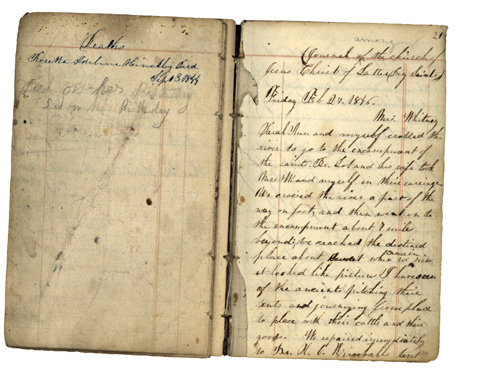 Deaths
Adeline Died
Sept 3 1844
Died on her Birthday
on his Birthday
among
21
Journal of the church of
Jesus Christ of Latter Day Saints
Friday Feb 27. 1846.
Mrs. Whitney
Sarah Ann and myself crossed the
river to go to the encampment of
the saints. Br. Lot and his wife took
Mrs. W and myself in their carriage
We crossed the river a part of the
way on foot, and then went on to
the encampment about 7 mile
beyond; we reached the destined
place about sunset when we came in view
it looked like pictures I have seen
of the ancients pitching their
tents and journying from place
to place with their cattle and their
goods. We repaired immediately
to Br. H. C. Kimball's tent